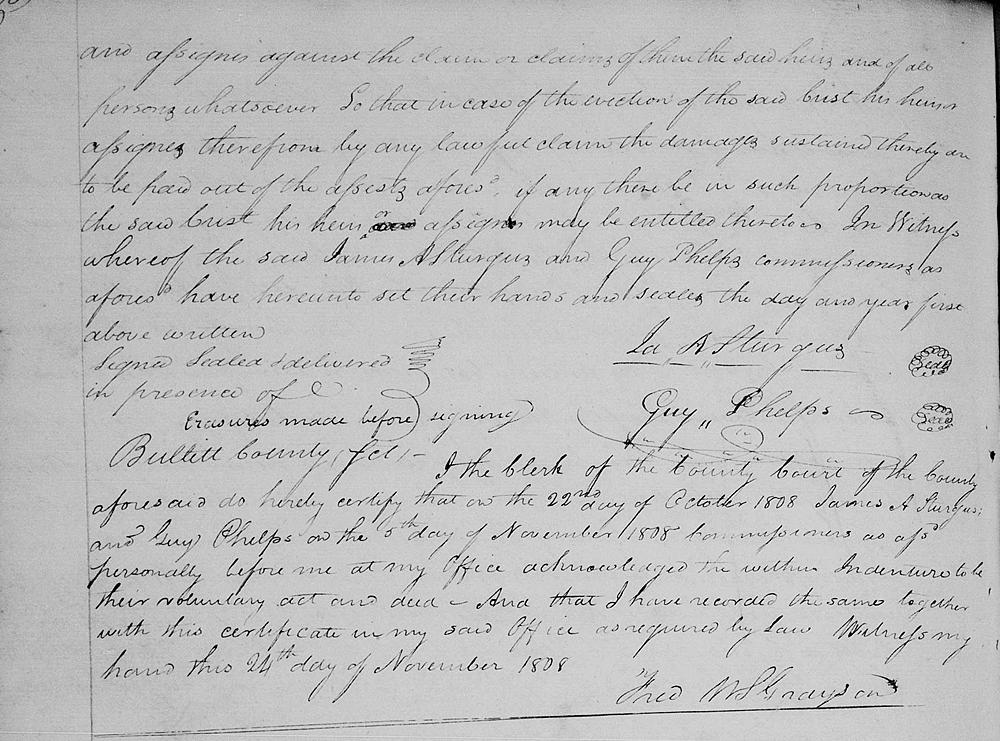 and assignes against the claim or claims of them the said heirs and of all
persons whatsoever So that in case of the eviction of the said Crist his heirs or
assignes therefrom by any lawful claim the damages sustained thereby are
to be paid out of the assests afores.d if any there be in such proportion as
the said Crist his heirs or assignes may be entitled thereto In Witness
whereof the said James A Sturgus and Guy Phelps commissioners as
afores.d have hereunto set their hands and seales the day and year first
above written
Signed Sealed & delivered
in presence of
Ja A Sturgus Seal
Erasures made before signing
Guy Phelps Seal
Bullitt County Sct
I the Clerk of the County Court of the County
aforesaid do hereby certify that on the 22nd day of October 1808 James A Sturgus
and Guy Phelps on the 5th day of November 1808 Commissioners as afsd
personally before me at my Office acknowledged the within Indenture to be
their voluntary act and deed - And that I have recorded the same together
with this certificate in my said Office as required by Law Witness my
hand this 24th day of November 1808
Fred W S Grayson